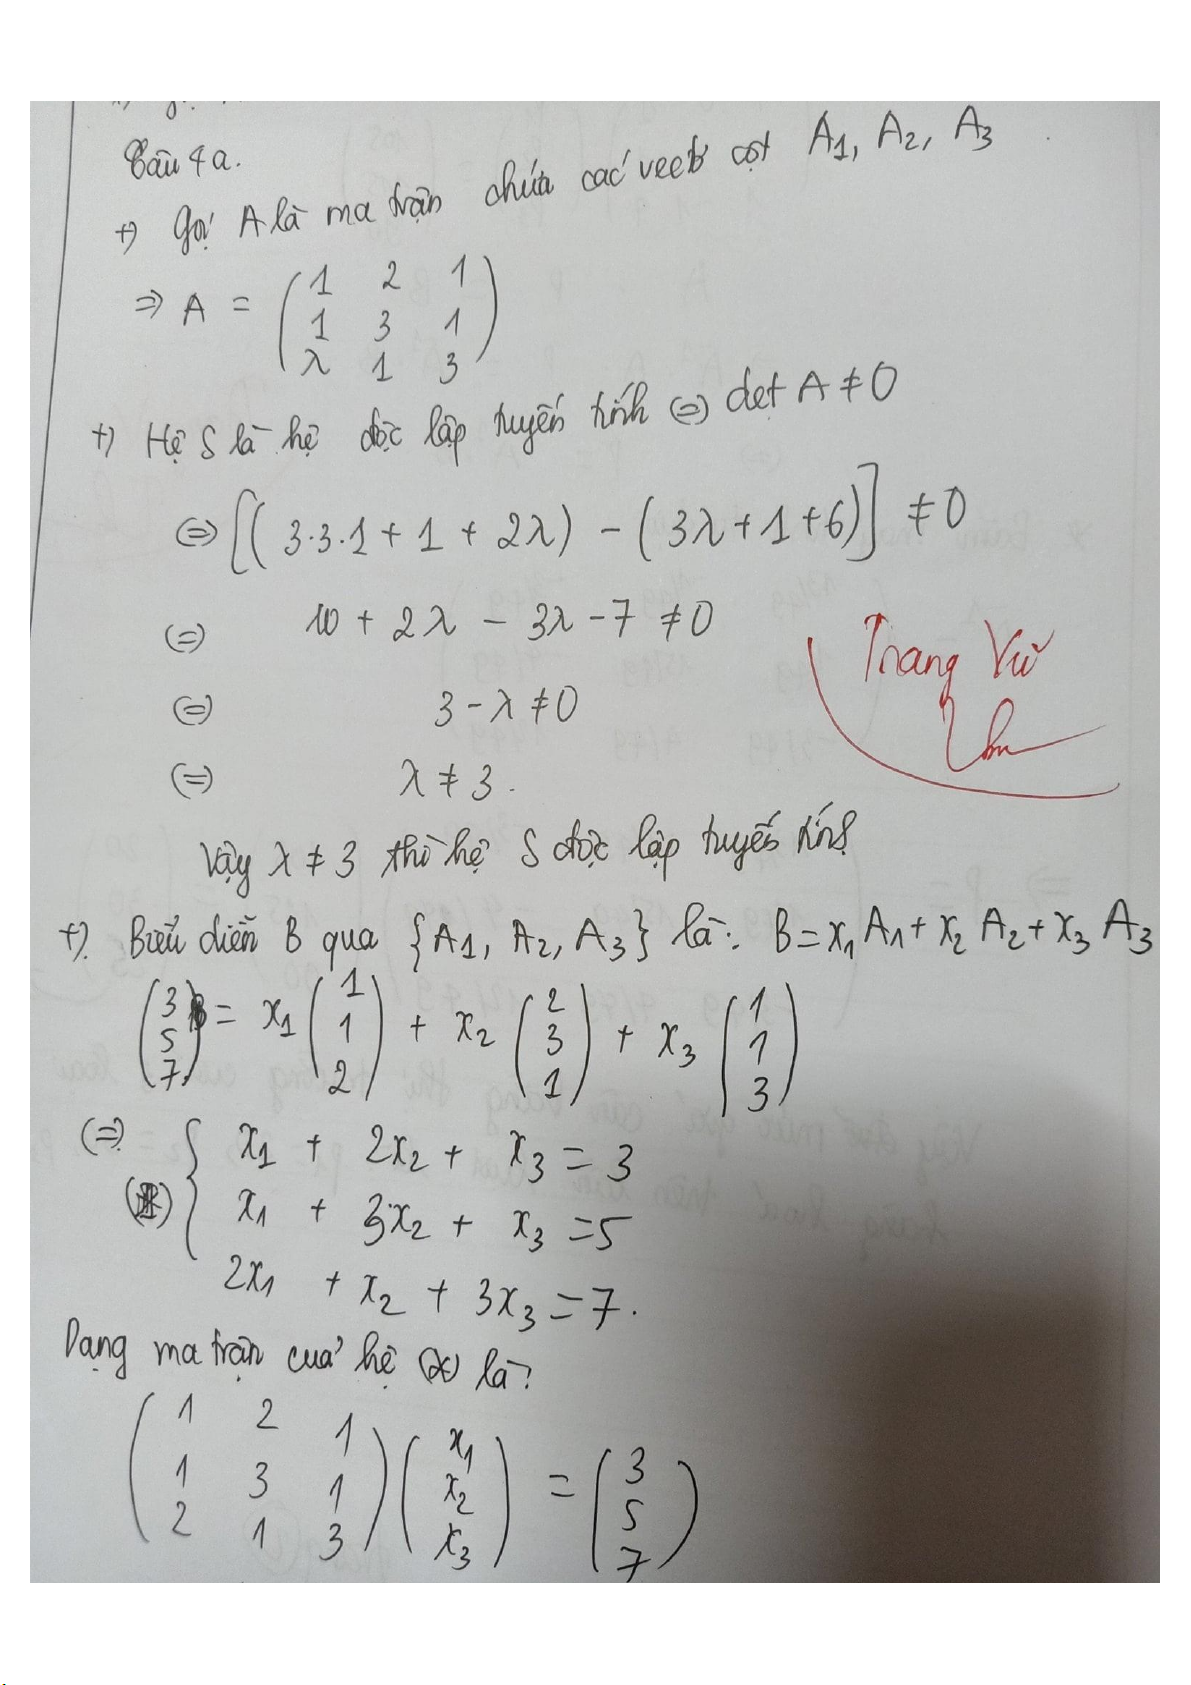 Câu 4a.
+) Gọi A là ma trận chứa các vectơ cột A1, A2, A3
=> A = ( 1 2 1
1 3 1
λ 1 3 )
+) Hệ S là hệ độc lập tuyến tính (=) det A ≠ 0
(=) [(3.3.1 + 1 + 2λ) - (3λ + 1 + 6)] ≠ 0
(=) 10 + 2λ - 3λ - 7 ≠ 0
(=) 3 - λ ≠ 0
(=) λ ≠ 3.
Trang Vũ
Vậy λ ≠ 3 thì hệ S độc lập tuyến tính
+). Biểu diễn B qua {A1, A2, A3} là: B = x1 A1 + x2 A2 + x3 A3
( 3 5 7 ) = x1 ( 1 1 2 ) + x2 ( 2 3 1 ) + x3 ( 1 1 3 )
(=) { x1 + 2x2 + x3 = 3
x1 + 3x2 + x3 = 5
2x1 + x2 + 3x3 = 7.
Dạng ma trận của hệ (*) là:
( 1 2 1
1 3 1
2 1 3 ) ( x1 x2 x3 ) = ( 3 5 7 )